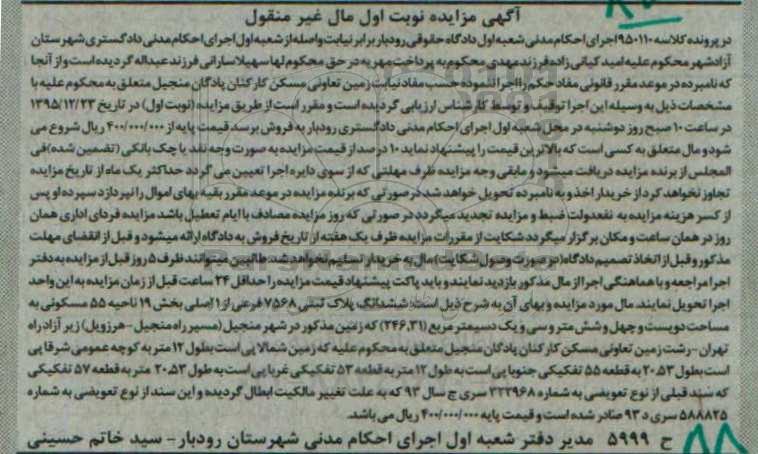 آگهی مزایده نوبت اول مال غیر منقول
در پرونده کلاسه ۹۵۰۱۱۰ اجرای احکام مدنی شعبه اول دادگاه حقوقی رودبار برابر نیابت واصله از شعبه اول اجرای احکام مدنی دادگستری شهرستان
آزادشهر محکوم علیه امید کیانی زاده فرزند مهدی محکوم به پرداخت مهریه در حق محکوم لها سهیلا سارانی فرزند عبداله گردیده است و از آنجا
که نامبرده در موعد مقرر قانونی مفاد حکم را اجرا ننموده حسب مفاد نیابت زمین تعاونی مسکن کارکنان پادگان منجیل متعلق به محکوم علیه با
مشخصات ذیل به وسیله این اجرا توقیف و توسط کارشناس ارزیابی گردیده است و مقرر است از طریق مزایده (نوبت اول) در تاریخ ۱۳۹۵/۱۲/۲۳
در ساعت ۱۰ صبح روز دوشنبه در محل شعبه اول اجرای احکام مدنی دادگستری رودبار به فروش برسد قیمت پایه از ۴۰۰/۰۰۰/۰۰۰ ریال شروع می
شود و مال متعلق به کسی است که بالاترین قیمت را پیشنهاد نماید ۱۰ درصد از قیمت مزایده به صورت وجه نقد یا چک بانکی (تضمین شده) فی
المجلس از برنده مزایده دریافت میشود و مابقی وجه مزایده ظرف مهلتی که از سوی دایره اجرا تعیین می گردد حداکثر یک ماه از تاریخ مزایده
تجاوز نخواهد کرد از خریدار اخذ و به نامبرده تحویل خواهد شد در صورتی که برنده مزایده در موعد مقرر بقیه بهای اموال را نپردازد سپرده او پس
از کسر هزینه مزایده به نفع دولت ضبط و مزایده تجدید میگردد در صورتی که روز مزایده مصادف با ایام تعطیل باشد مزایده فردای اداری همان
روز در همان ساعت و مکان برگزار میگردد شکایت از مقررات مزایده ظرف یک هفته از تاریخ فروش به دادگاه ارائه میشود و قبل از انقضای مهلت
مذکور و قبل از اتخاذ تصمیم دادگاه (در صورت وصول شکایت) مال به خریدار تسلیم نخواهد شد. طالبین میتوانند ظرف ۵ روز قبل از مزایده به دفتر
اجرا مراجعه و با هماهنگی اجرا از مال مذکور بازدید نمایند و باید پاکت پیشنهاد قیمت مزایده را حداقل ۲۴ ساعت قبل از زمان مزایده به این واحد
اجرا تحویل نمایند. مال مورد مزایده و بهای آن به شرح ذیل است: ششدانگ پلاک ثبتی ۷۵۶۸ فرعی از ۱ اصلی بخش ۱۹ ناحیه ۵۵ مسکونی به
مساحت دویست و چهل و شش متر و سی و یک دسیمتر مربع (۲۴۶,۳۱) که زمین مذکور در شهر منجیل (مسیر راه منجیل - هرزویل) زیر آزادراه
تهران - رشت زمین تعاونی مسکن کارکنان پادگان منجیل متعلق به محکوم علیه که زمین شمالا پی است بطول ۱۲ متر به کوچه عمومی شرقا پی
است بطول ۲۰،۵۳ به قطعه ۵۵ تفکیکی جنوبا پی است به طول ۱۲ متر به قطعه ۵۳ تفکیکی غربا پی است بطول ۲۰،۵۳ متر به قطعه ۵۷ تفکیکی
که سند قبلی از نوع تعویضی به شماره ۳۳۲۹۶۸ سری ج سال ۹۳ که به علت تغییر مالکیت ابطال گردیده و این سند از نوع تعویضی به شماره
۵۸۸۸۲۵ سری د ۹۳ صادر شده است و قیمت پایه ۴۰۰/۰۰۰/۰۰۰ ریال می باشد.
ح ۵۹۹۹ مدیر دفتر شعبه اول اجرای احکام مدنی شهرستان رودبار - سید خاتم حسینی